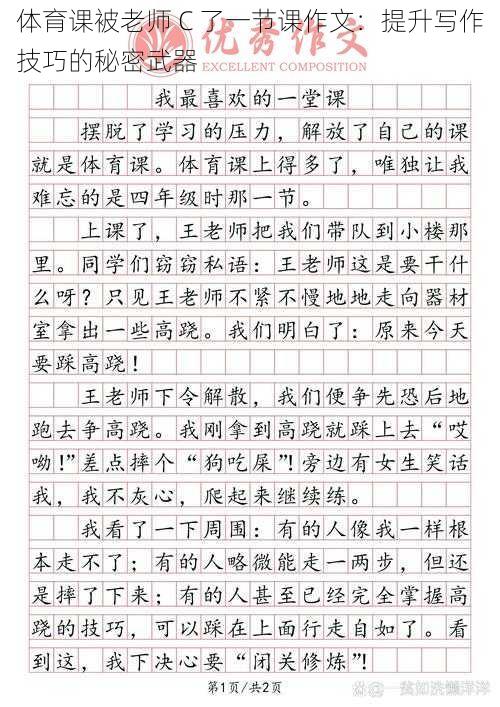 体育课被老师 C 了一节课作文：提升写作
技巧的秘密武器
优秀作文
EXCELLENT COMPOSITION
我最喜欢的一堂课
摆脱了学习的压力，解放了自己的课
就是体育课。体育课上得多了，唯独让我
难忘的是四年级时那一节。
上课了，王老师把我们带队到小楼那
里。同学们窃窃私语：王老师这是要干什
么呀？只见王老师不紧不慢地地走向器材
室拿出一些高跷。我们明白了：原来今天
要踩高跷！
王老师下令解散，我们便争先恐后地
跑去争高跷。我刚拿到高跷就踩上去“哎
呦！”差点摔个“狗吃屎”！旁边有女生笑话
我，我不灰心，爬起来继续练。
我看了一下周围：有的人像我一样根
本走不了；有的人略微能走一两步，但还
是摔了下来；有的人甚至已经完全掌握高
跷的技巧，可以踩在上面行走自如了。看
到这，我下决心要“闭关修炼”！
第1页/共2页